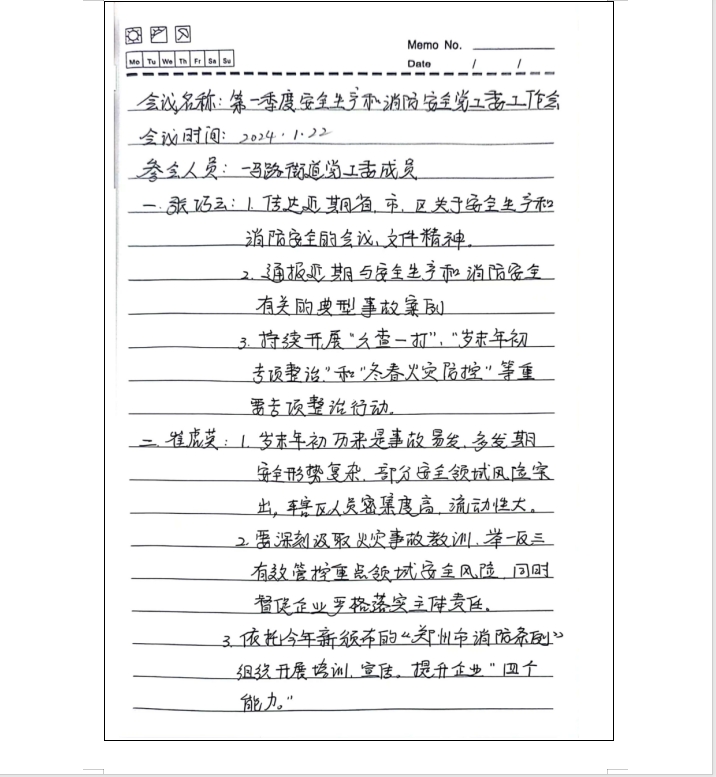 Memo No.
Mo Tu We Th Fr Sa Su
Date / /
会议名称：第一季度安全生产和消防安全党工委工作会
会议时间：2024.1.22
参会人员：一马路街道党工委成员
一.张巧云：1.传达近期省、市、区关于安全生产和
消防安全的会议、文件精神。
2.通报近期与安全生产和消防安全
有关的典型事故案例
3.持续开展“三查一打”、“岁末年初
专项整治”和“冬春火灾防控”等重
要专项整治行动。
二.崔虎英：1.岁末年初历来是事故易发、多发期
安全形势复杂，部分安全领域风险突
出，辖区人员密集度高，流动性大。
2.要深刻汲取火灾事故教训，举一反三
有效管控重点领域安全风险，同时
督促企业严格落实主体责任。
3.依托今年新颁布的《郑州市消防条例》
组织开展培训、宣传。提升企业“四个
能力。”